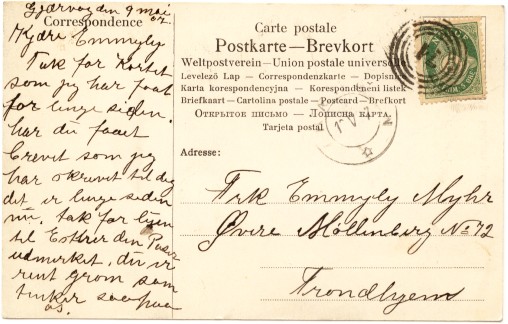 Gjærvog den 9 mai
07.
Correspondence
Kjære Emmyly
Tak for Kortet
som jeg har faat
for lenge siden.
har du faaet
brevet som jeg
har skrevet til dig
det er lenge siden
nu. tak for
til Esther den
udmerket, du er
rent grom som
tenker saa paa
os.
Carte postale
Postkarte—Brevkort
Weltpostverein—Union postale universelle
Levelező Lap — Correspondenzkarte — Dopisnice
Karta korespondencyjna — Korespondenčni listek
Briefkaart—Cartolina postale—Postcard—Brefkort
Открытое письмо — Дописна карта.
Tarjeta postal
Adresse:
Frk Emmyly Myhr
Øvere Möllenberg No 72
Trondhjem